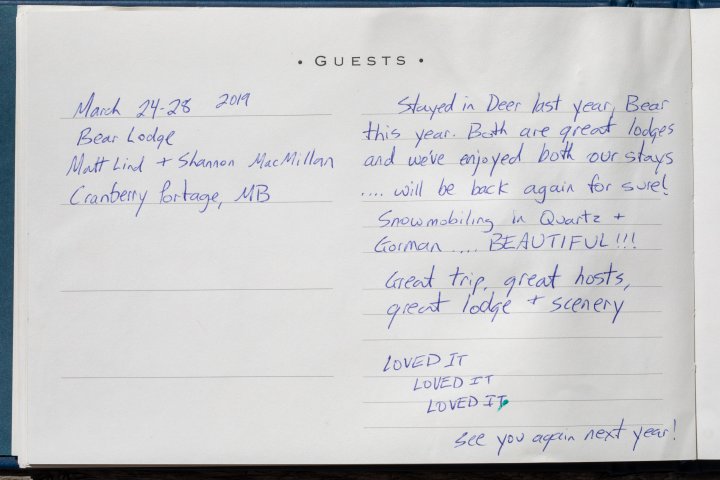 • GUESTS •
March 24-28 2019
Bear Lodge
Matt Lind + Shannon MacMillan
Cranberry Portage, MB
Stayed in Deer last year, Bear
this year. Both are great lodges
and we've enjoyed both our stays
.... will be back again for sure!
Snowmobiling in Quartz +
Gorman .... BEAUTIFUL!!!
Great trip, great hosts,
great lodge + scenery
LOVED IT
LOVED IT
LOVED IT
see you again next year!